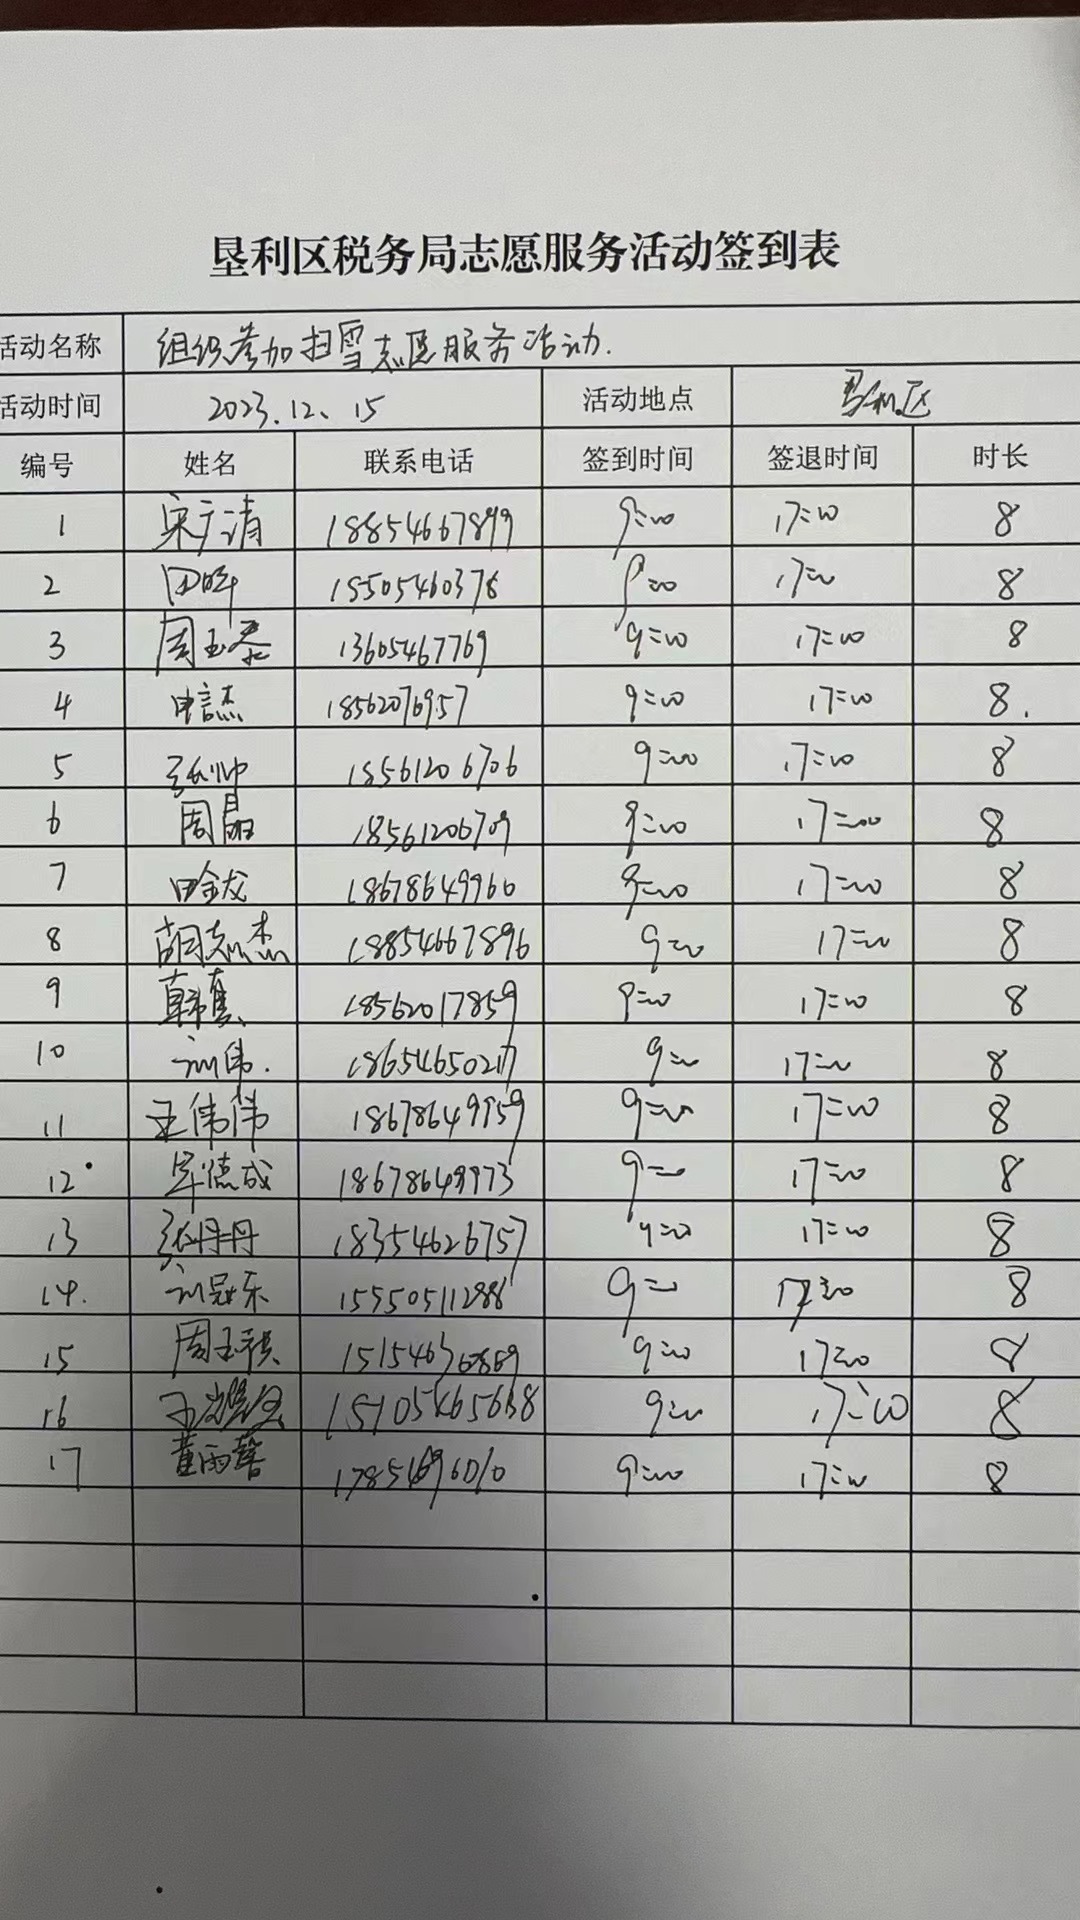 垦利区税务局志愿服务活动签到表
活动名称 组织参加扫雪志愿服务活动.
活动时间 2023.12、15 活动地点 垦利区
编号 姓名 联系电话 签到时间 签退时间 时长
1 宋广清 18854667899 9=00 17=00 8
2 田晖 15505460378 9=00 17=00 8
3 周玉泰 13605467769 9=00 17=00 8
4 申言杰 18562076957 9=00 17=00 8.
5 张帅 18561206706 9=00 17=00 8
6 周晶 18561206709 9=00 17=00 8
7 田金龙 18678649960 9=00 17=00 8
8 胡志杰 18854667896 9=00 17=00 8
9 韩真 18562017859 9=00 17=00 8
10 刘伟. 9=00 17=00 8
11 王伟伟 18678649959 9=00 17=00 8
12 德成 18678649973 9=00 17=00 8
13 张丹丹 18354626757 9=00 17=00 8
14. 刘冠东 15550511288 9=00 17=00 8
15 周玉祺 9=00 17=00 8
16 王 9=00 17=00 8
17 董雨馨 9=00 17=00 8